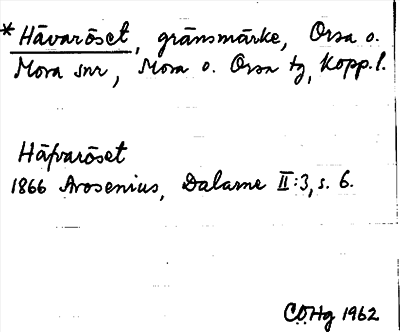 *Håvaröset, gränsmärke, Orsa o.
Mora snr, Mora o. Orsa tg, Kopp. l.
Håfvaröset
1866 Arosenius, Dalarne II:3, s. 6.
CÖHg 1962